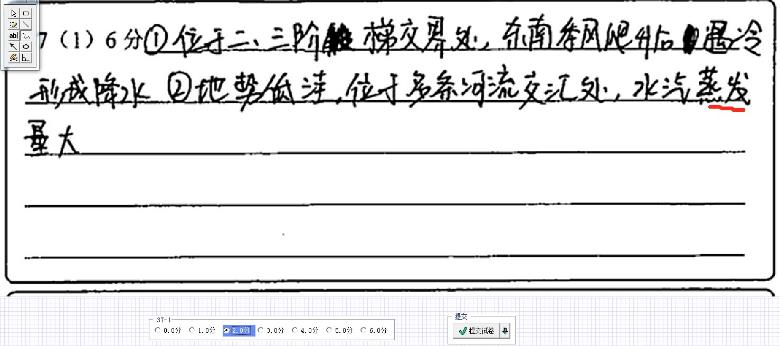 7（1）6分①位于二、三阶梯交界处，东南季风爬升后遇冷
形成降水 ②地势低洼，位于多条河流交汇处，水汽蒸发
量大
37-1
0.0分 1.0分 2.0分 3.0分 4.0分 5.0分 6.0分
提交
提交试卷